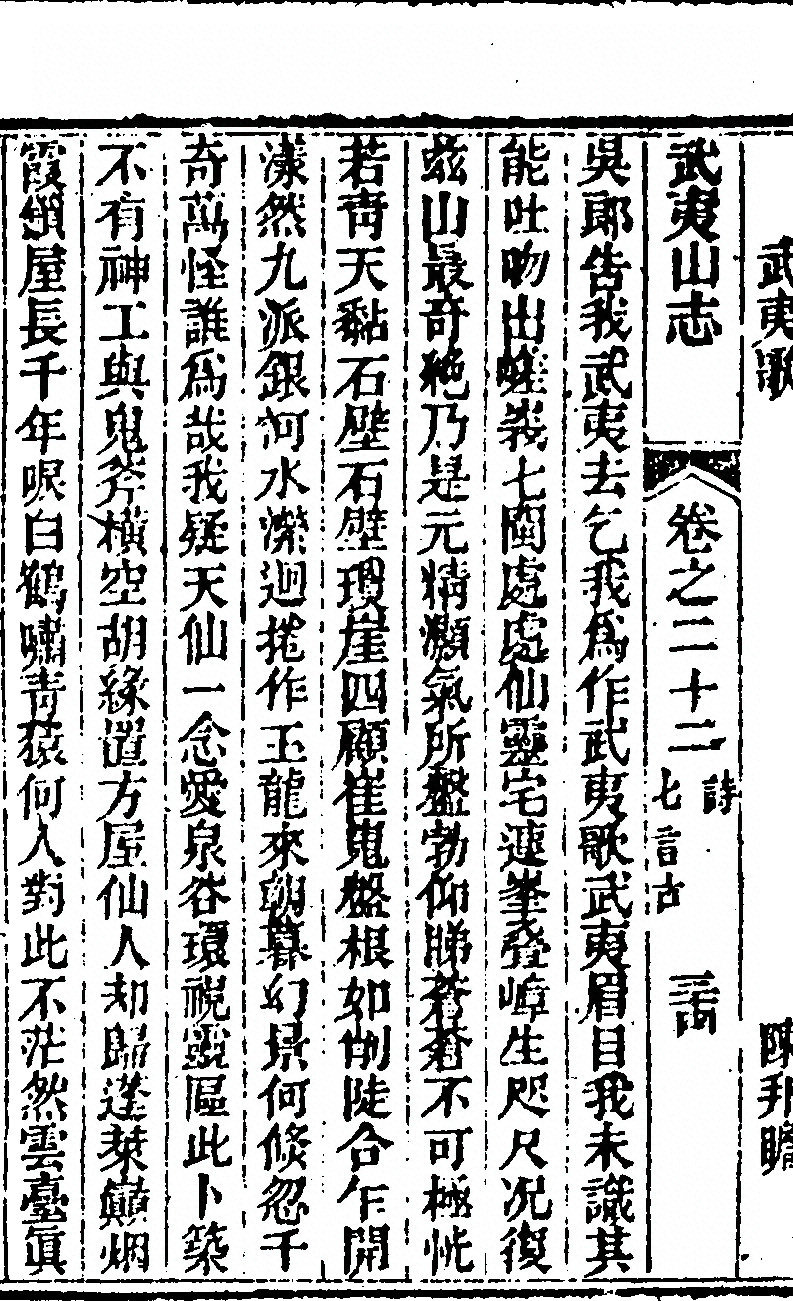 武夷歌 陳邦瞻
武夷山志 卷之二十二 詩 七言古
吳郎告我武夷去乞我爲作武夷歌武夷眉目我未識其
能吐吻出嵯峩七閩處處仙靈宅連峯疊嶂生咫尺况復
兹山最奇絶乃是元精灝氣所盤勃仰睇蒼蒼不可極恍
若靑天黏石壁石壁瓊崖四顧崔嵬盤根如削陡合乍開
漾然九派銀河水濚迴捲作玉龍來朝暮幻景何倐忽千
奇萬怪誰爲哉我疑天仙一念愛泉谷環視靈區此卜築
不有神工與鬼斧橫空胡緣置方屋仙人却歸蓬萊巔烟
霞鎖屋長千年唳白鶴嘯靑猿何人對此不茫然雲臺眞